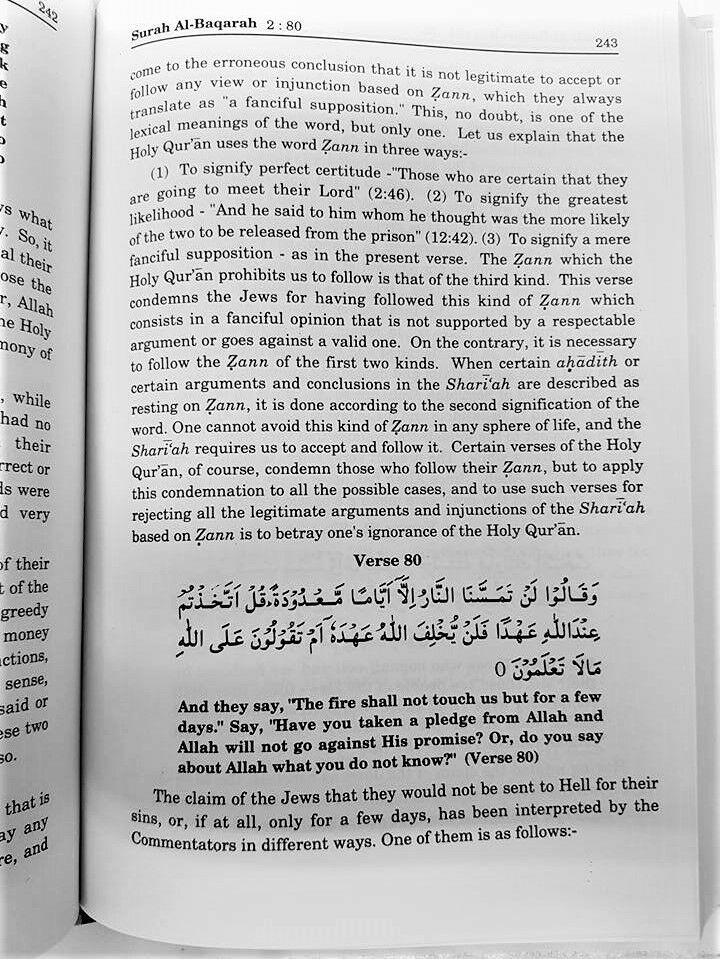 242
y
g
k
e
h
t
o
o
ys what
y. So, it
al their
ose the
r, Allah
he Holy
mony of
, while
had no
their
rrect or
ds were
d very
of their
t of the
greedy
money
ctions,
sense,
said or
ese two
so.
that is
ay any
re, and
Surah Al-Baqarah 2 : 80
243
come to the erroneous conclusion that it is not legitimate to accept or
follow any view or injunction based on Ẓann, which they always
translate as "a fanciful supposition." This, no doubt, is one of the
lexical meanings of the word, but only one. Let us explain that the
Holy Qur'ān uses the word Ẓann in three ways:-
(1) To signify perfect certitude -"Those who are certain that they
are going to meet their Lord" (2:46). (2) To signify the greatest
likelihood - "And he said to him whom he thought was the more likely
of the two to be released from the prison" (12:42). (3) To signify a mere
fanciful supposition - as in the present verse. The Ẓann which the
Holy Qur'ān prohibits us to follow is that of the third kind. This verse
condemns the Jews for having followed this kind of Ẓann which
consists in a fanciful opinion that is not supported by a respectable
argument or goes against a valid one. On the contrary, it is necessary
to follow the Ẓann of the first two kinds. When certain aḥādīth or
certain arguments and conclusions in the Sharī‘ah are described as
resting on Ẓann, it is done according to the second signification of the
word. One cannot avoid this kind of Ẓann in any sphere of life, and the
Sharī‘ah requires us to accept and follow it. Certain verses of the Holy
Qur'ān, of course, condemn those who follow their Ẓann, but to apply
this condemnation to all the possible cases, and to use such verses for
rejecting all the legitimate arguments and injunctions of the Sharī‘ah
based on Ẓann is to betray one's ignorance of the Holy Qur'ān.
Verse 80
وَقَالُوْا لَنْ تَمَسَّنَا النَّارُ اِلَّآ اَيَّامًا مَّعْدُوْدَةً ؕ قُلْ اَتَّخَذْتُمْ
عِنْدَاللّٰهِ عَهْدًا فَلَنْ يُّخْلِفَ اللّٰهُ عَهْدَهٗۤ اَمْ تَقُوْلُوْنَ عَلَى اللّٰهِ
مَالَا تَعْلَمُوْنَ ٥
And they say, "The fire shall not touch us but for a few
days." Say, "Have you taken a pledge from Allah and
Allah will not go against His promise? Or, do you say
about Allah what you do not know?" (Verse 80)
The claim of the Jews that they would not be sent to Hell for their
sins, or, if at all, only for a few days, has been interpreted by the
Commentators in different ways. One of them is as follows:-